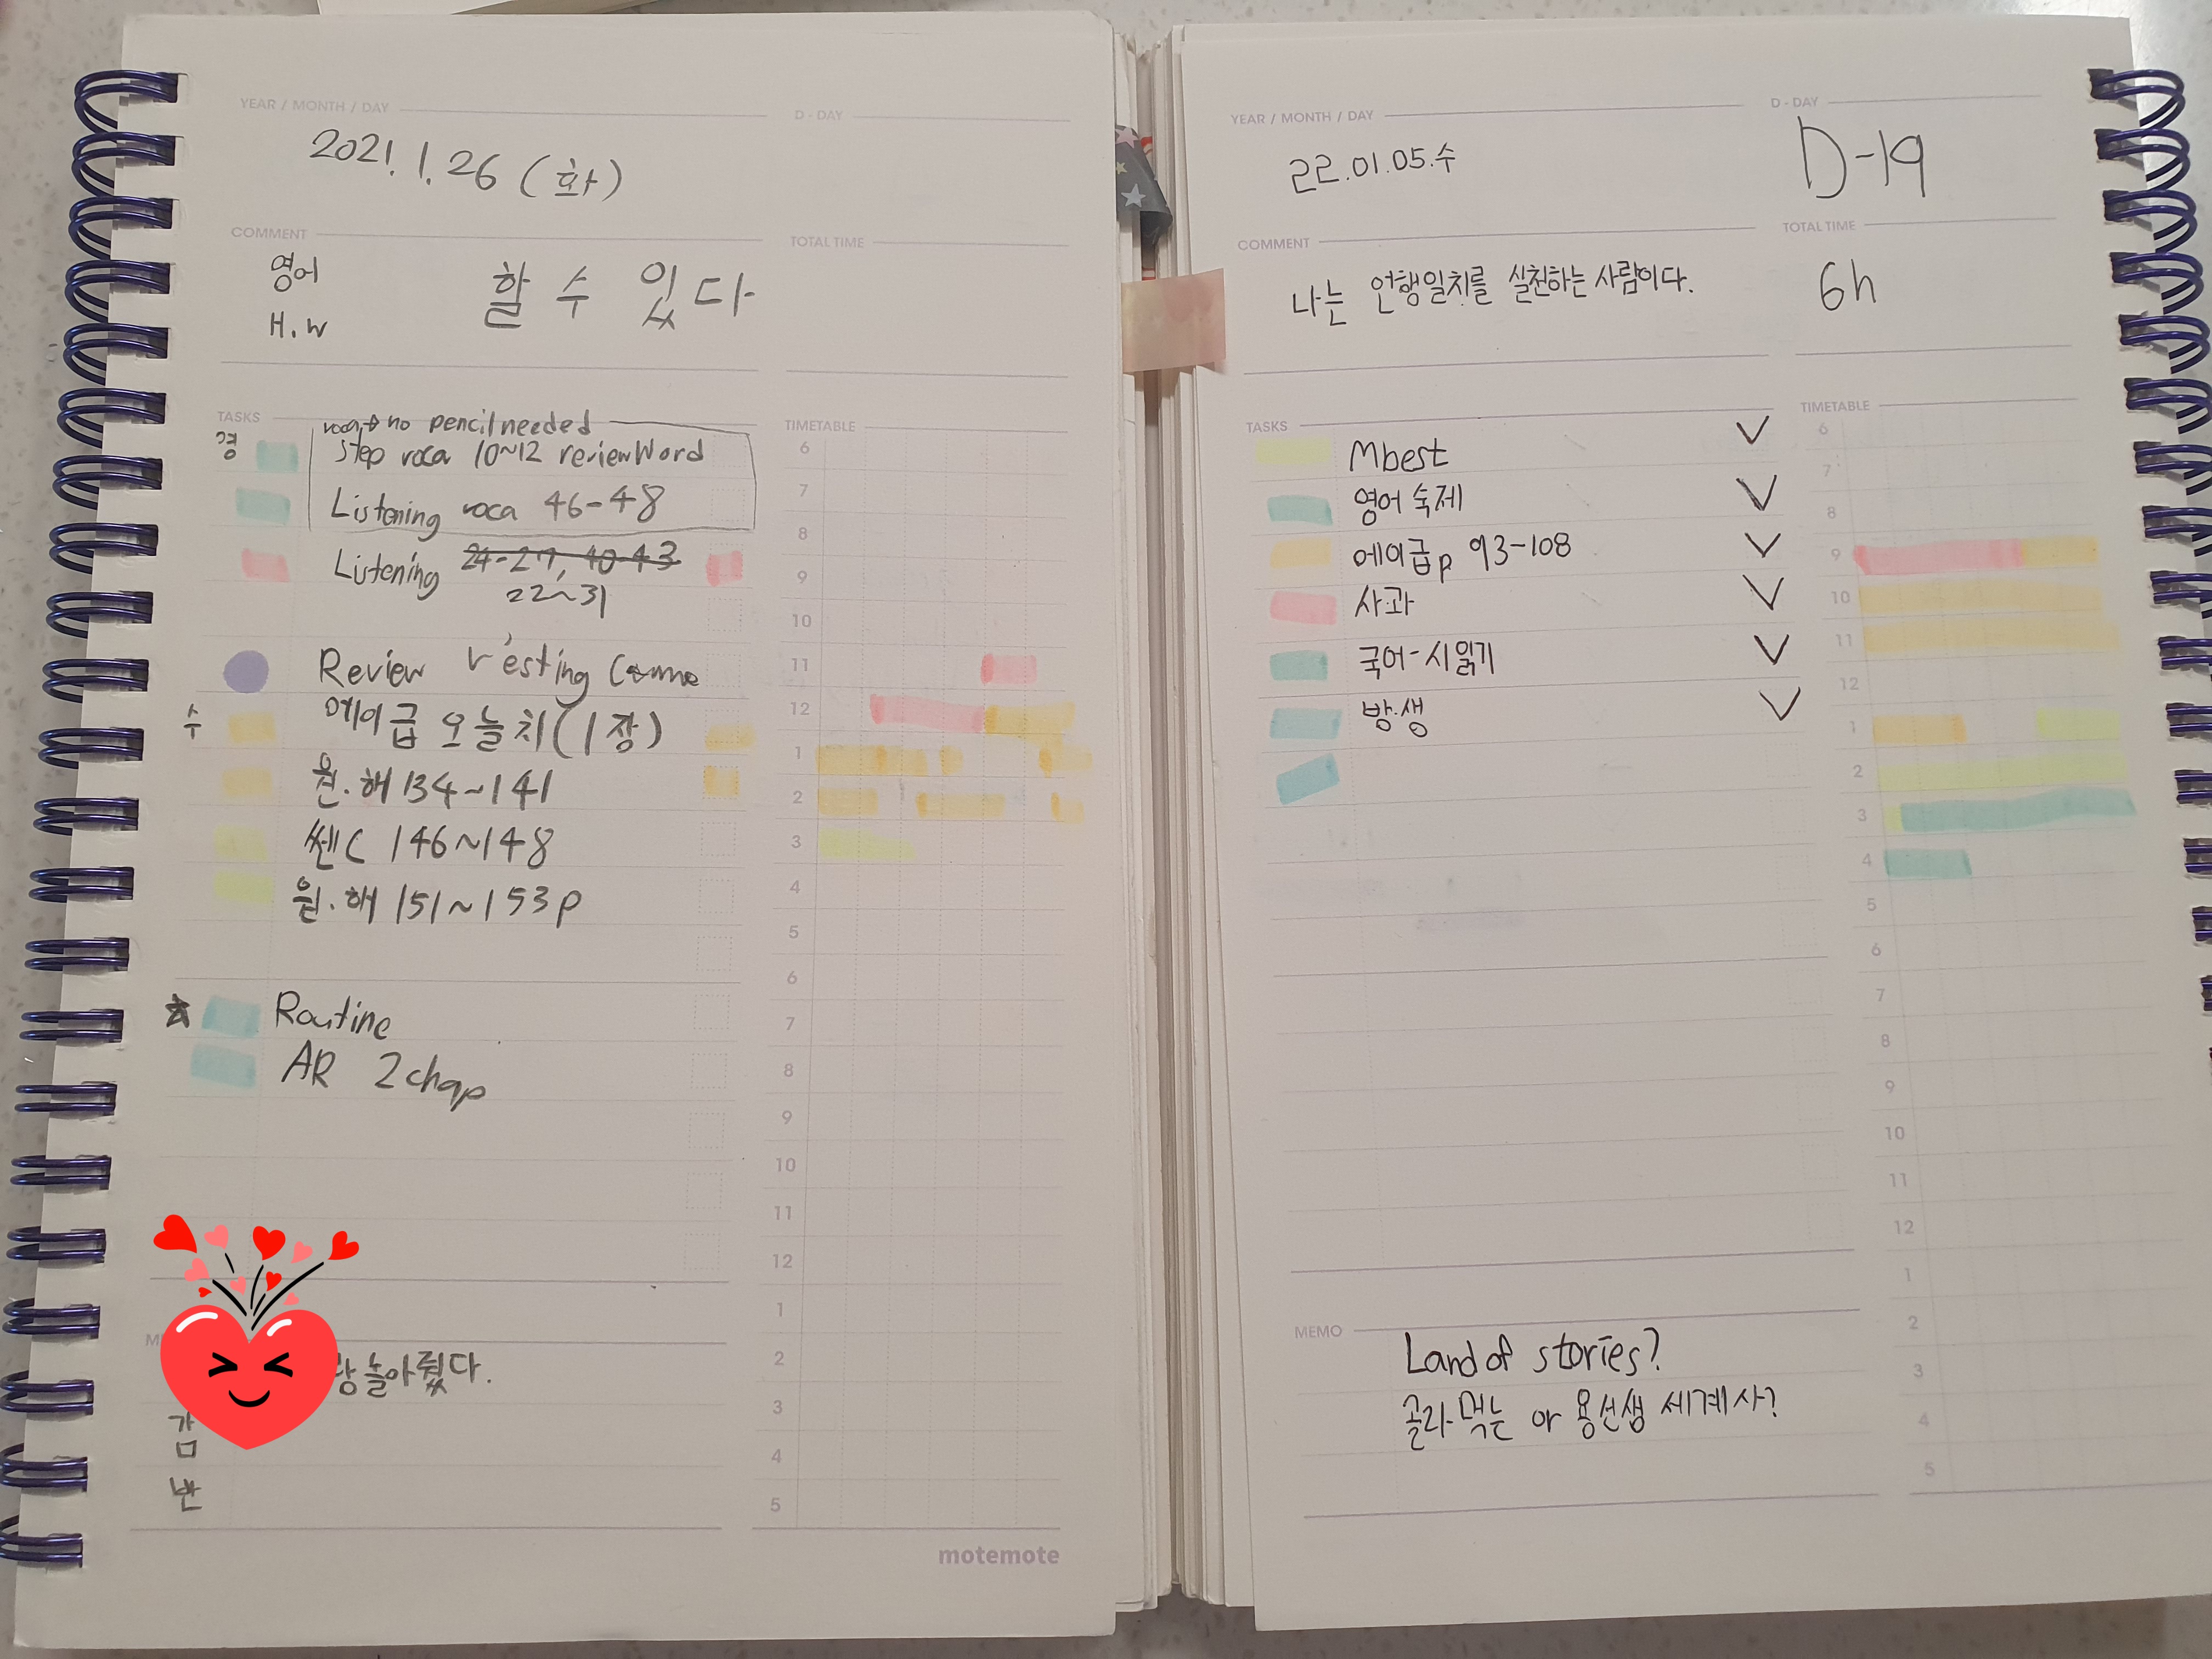 YEAR / MONTH / DAY
D - DAY
2021. 1. 26 (화)
COMMENT
TOTAL TIME
영어
H.W
할 수 있다
TASKS
TIMETABLE
voca → no pencil needed
영
step voca 10~12 review Word
Listening voca 46-48
Listening 24-27, 40-43
22~31
Review
수
에이급 오늘치 (1장)
원.해 134~141
쎈C 146~148
원.해 151~153p
☆ Routine
AR 2chap
놀아줬다.
감
반
6
7
8
9
10
11
12
1
2
3
4
5
6
7
8
9
10
11
12
1
2
3
4
5
motemote
YEAR / MONTH / DAY
D - DAY
22.01.05.수
D-19
COMMENT
TOTAL TIME
나는 언행일치를 실천하는 사람이다.
6h
TASKS
TIMETABLE
Mbest
영어 숙제
에이급 p 93-108
사과
국어-시 읽기
방.생
6
7
8
9
10
11
12
1
2
3
4
5
6
7
8
9
10
11
12
1
2
3
4
5
MEMO
Land of stories?
골라먹는 or 용선생 세계사?